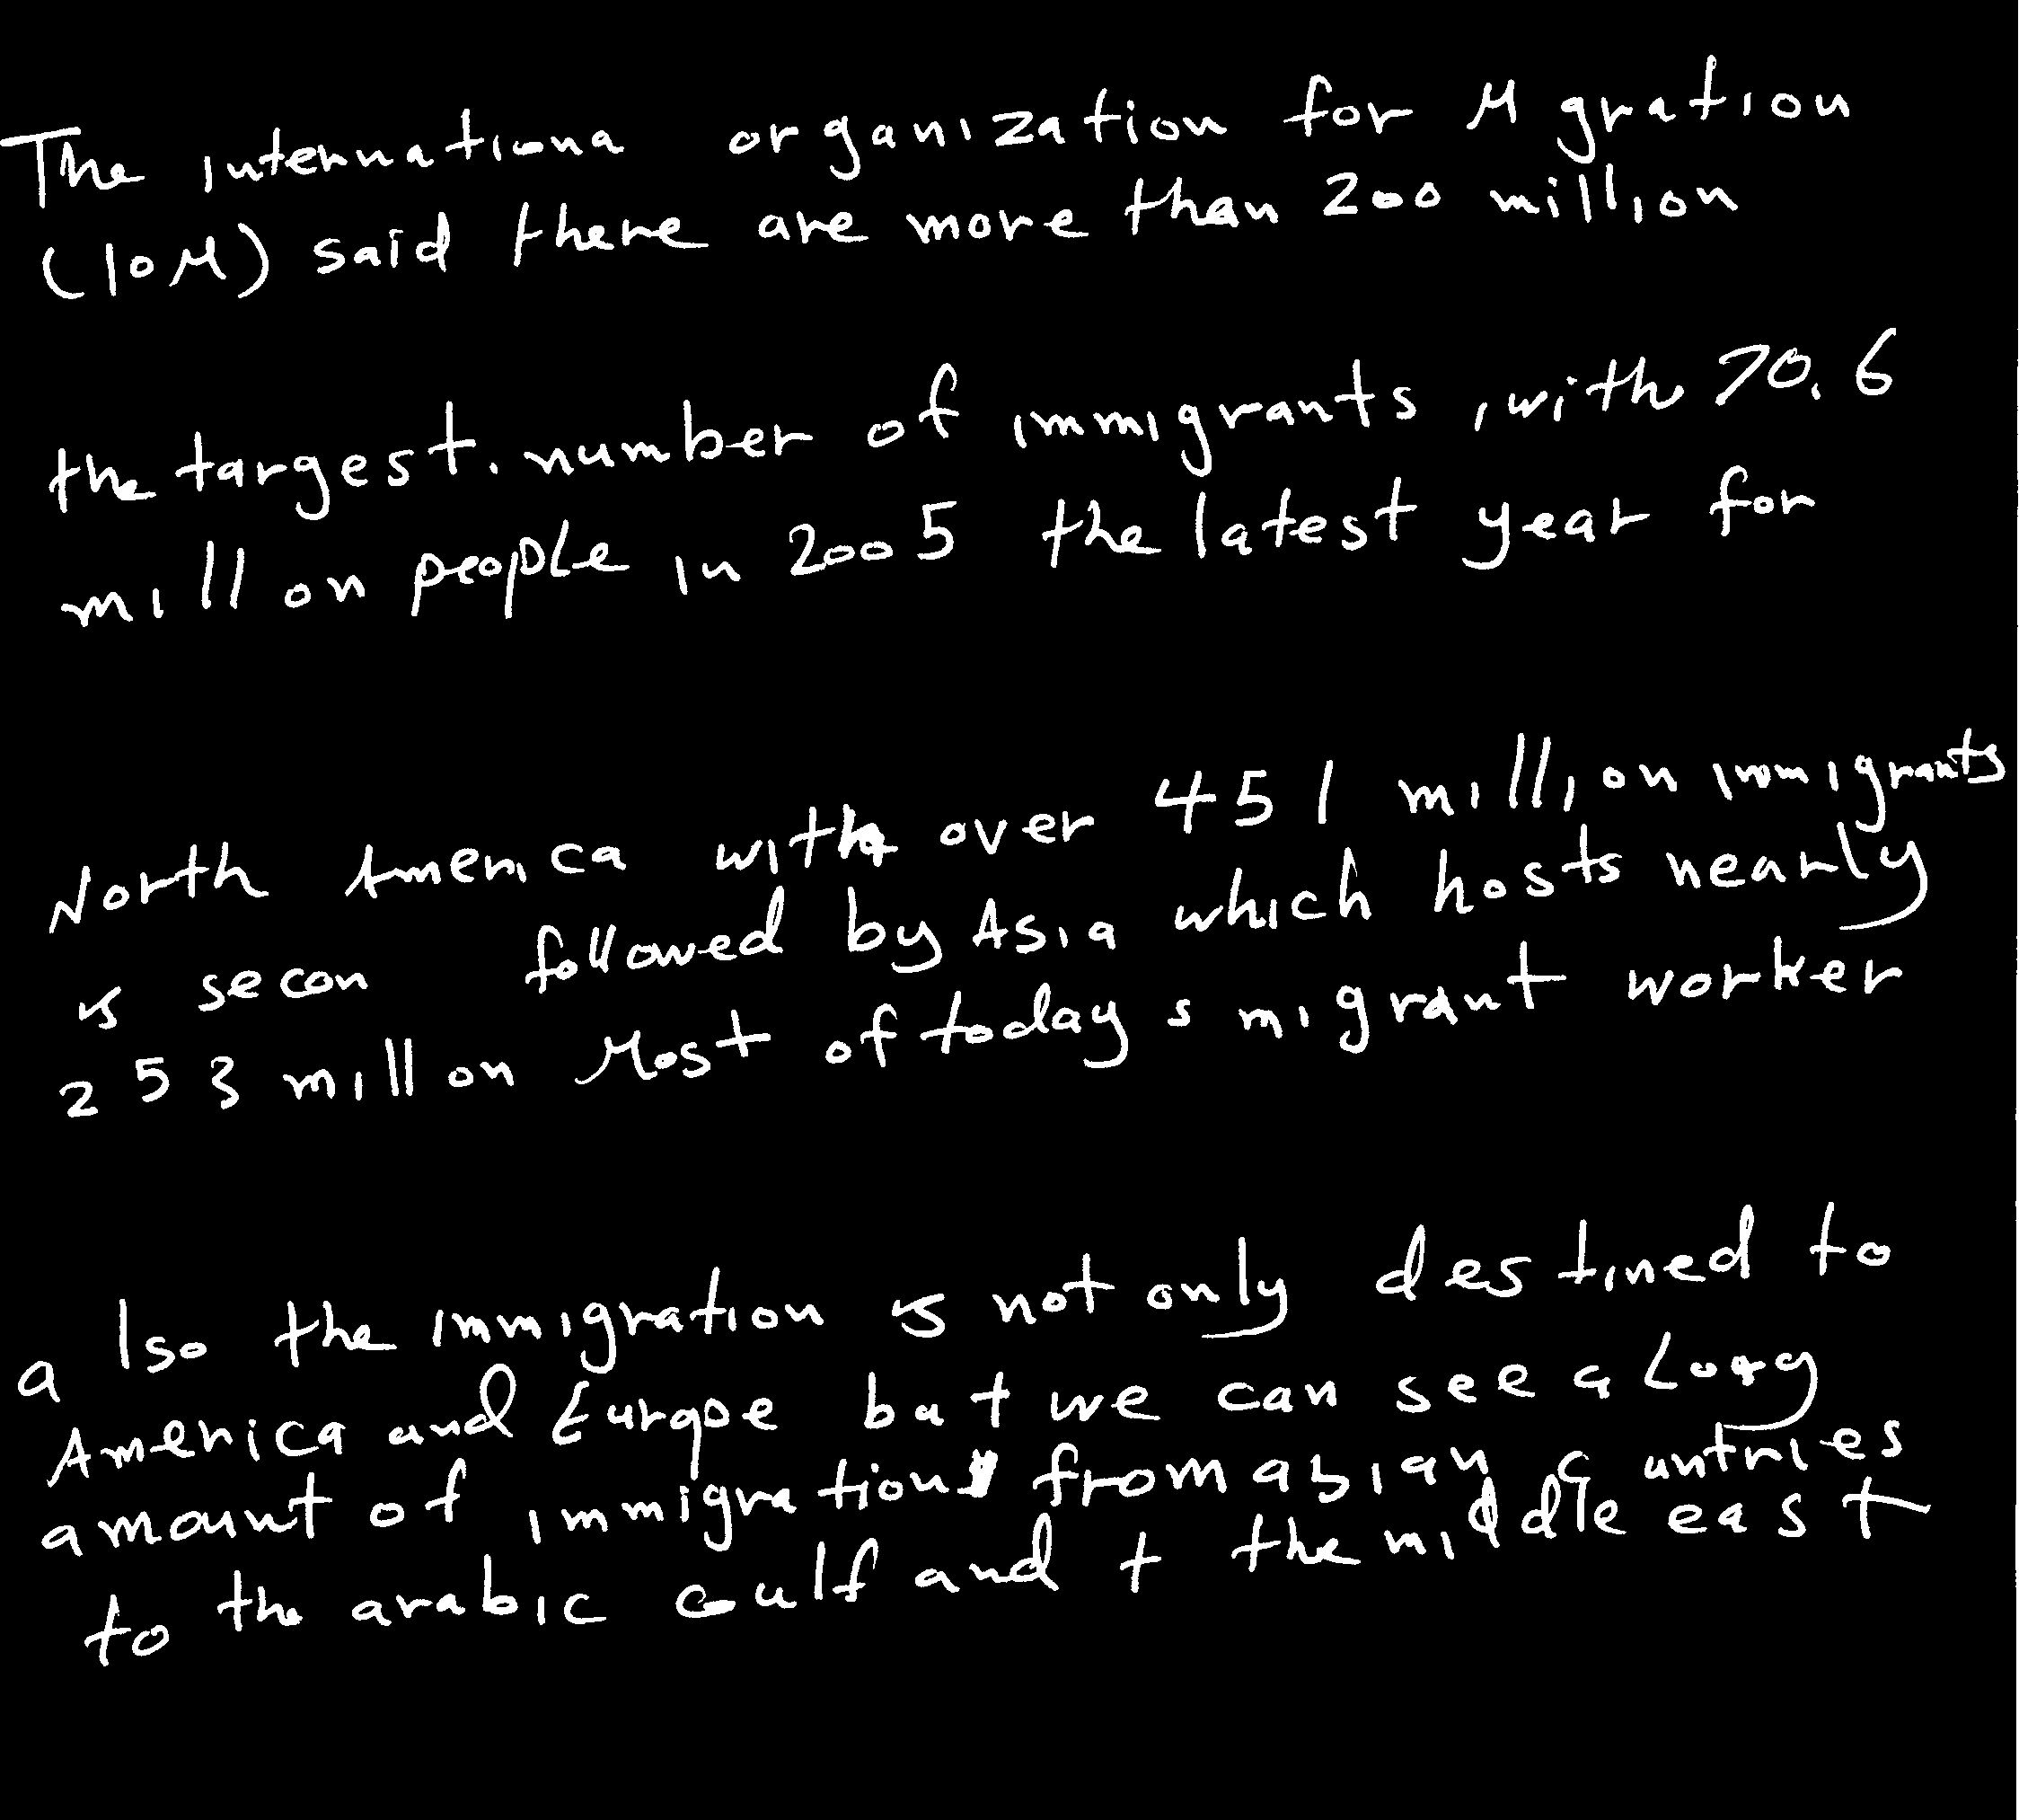 The internationa organization for M gration
(IOM) said there are more than 200 million
the targest. number of immigrants, with 70.6
mill on people in 2005 the latest year for
North America with over 45 1 million immigrants
is secon followed by Asia which hosts nearly
2 5 3 mill on Most of today s migrant worker
a lso the immigration is not only destined to
America and Europe but we can see a
amount of immigrations from asian c untries
to the arabic Gulf and t the middle east